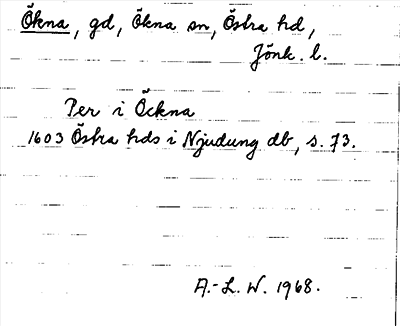 Ökna, gd, Ökna sn, Östra hd,
Jönk. l.
Per i Öckna
1603 Östra hds i Njudung db, s. 73.
A.-L. W. 1968.